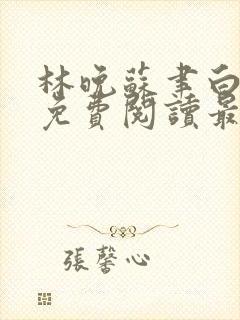 林晚蘇聿白
免費閱讀最
張馨心